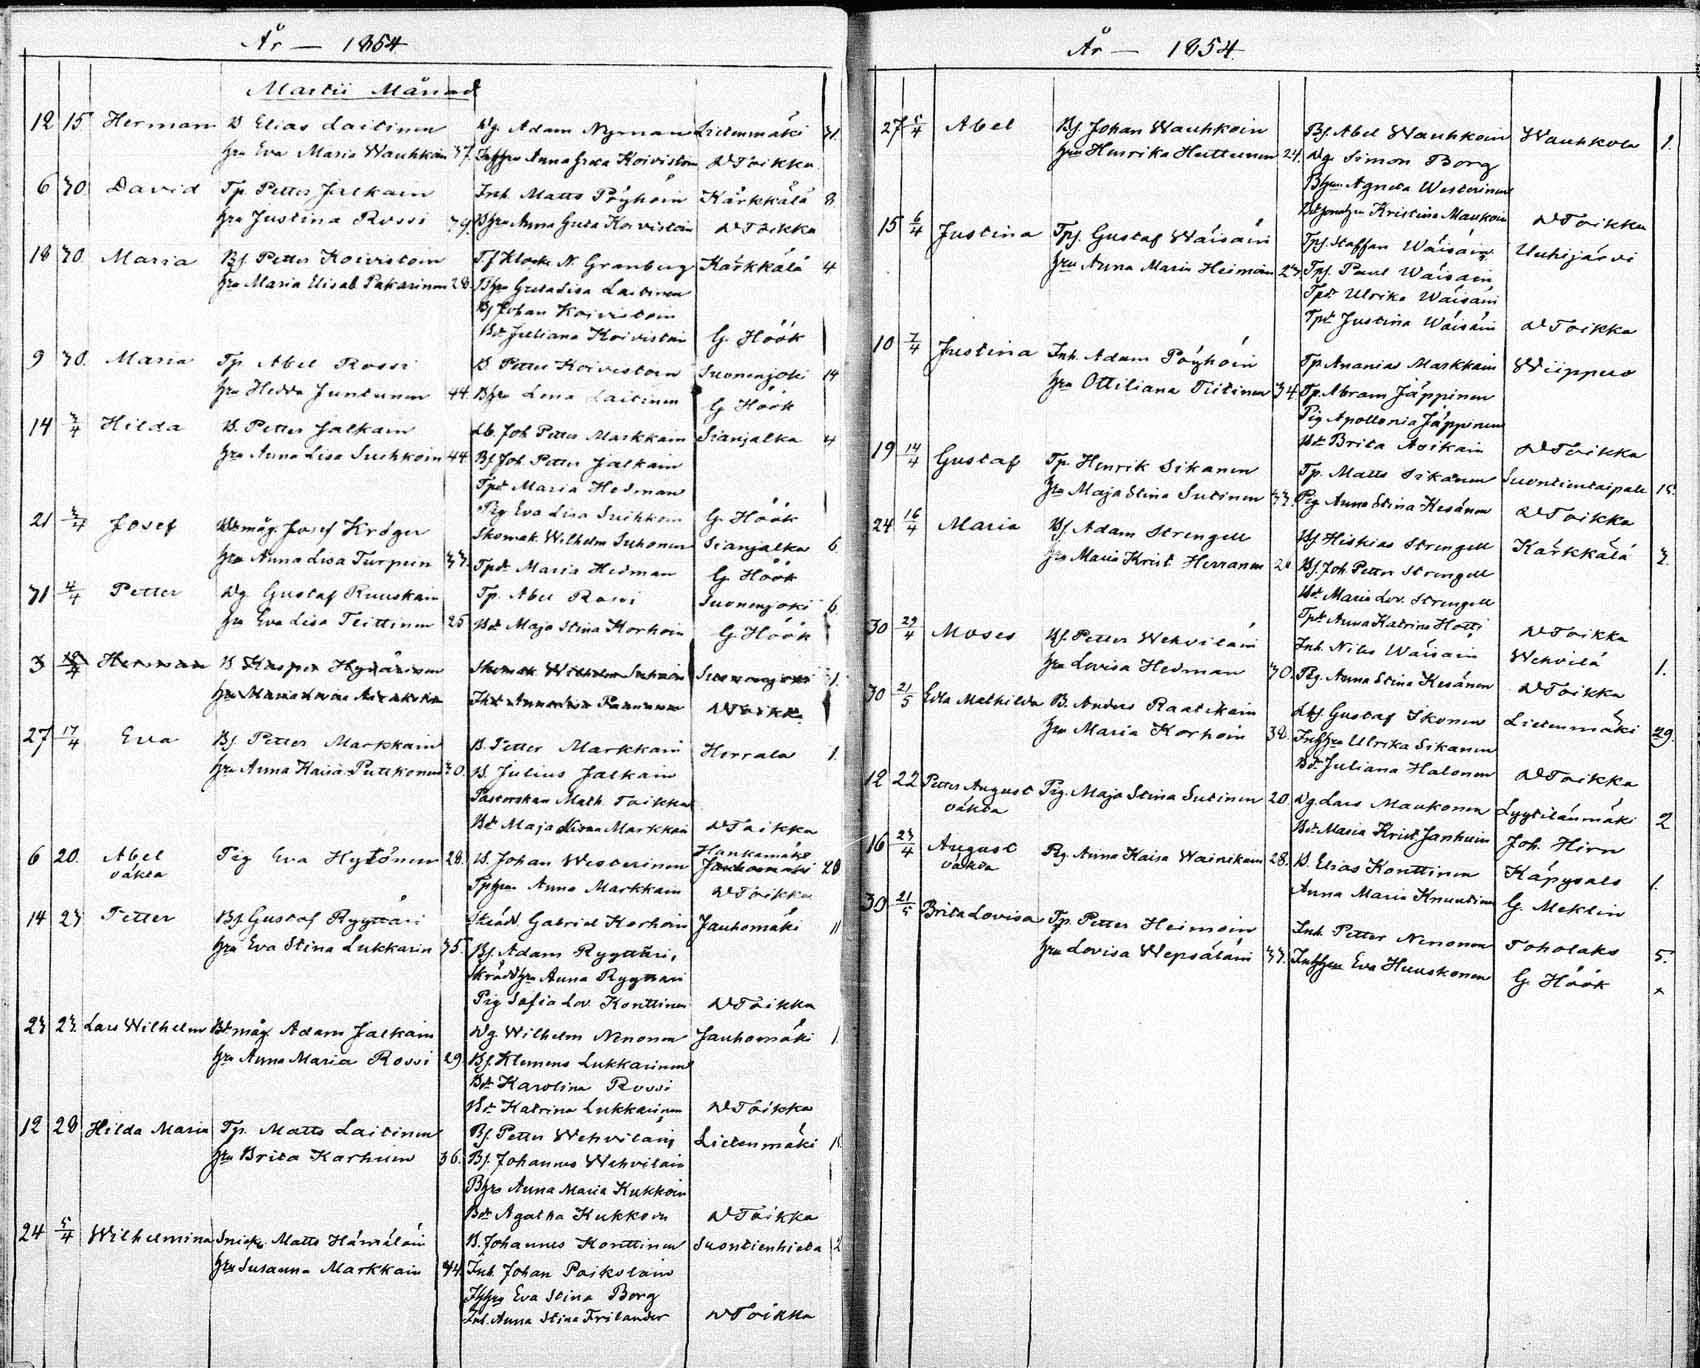 År — 1854
Martii Månad
12 15 Herman B Elias Laitinen Dg. Adam Nyman Lietenmäki 31
hu Eva Maria Wauhkoin 37. Anna Greta Koivistoin N Toikka
6 30 David Tp. Petter Jalkain Inh. Matts Pöyhöin Kärkkälä 8
hu Justina Rossi 39 Bhu Anna Greta Koivistoin N Toikka
18 30 Maria Bf. Petter Koivistoin N. Granberg Kärkkälä 4
hu Maria Elisab. Pakarinen 28. Bhu Greta Lisa Laitinen
Bf Johan Koivistoin
Bdr Juliana Koivistoin G. Höök
9 30. Maria Tp. Abel Rossi B. Petter Koivistoin Suonenjoki 14
hu Hedda Juntunen 44 Bhu Lena Laitinen G Höök
14 3/4 Hilda B. Petter Jalkain Joh Petter Markkain Sianjalka 4
hu Anna Lisa Suihkoin 44 Bf Joh Petter Jalkain
Tpdr Maria Hedman
Pig Eva Lisa Suihkoin G. Höök
21 3/4 Josef Bdrmåg. Josef Kröger Skomak Wilhelm Suhonen Sianjalka 6.
hu Anna Lisa Turpein 33 Tpdr Maria Hedman G. Höök
31 4/4 Petter Dg. Gustaf Ruuskain Tp. Abel Rossi Suonenjoki 6.
hu Eva Lisa Teittinen 25 Bdr Maja Stina Korhoin G. Höök
3 Herman B Kasper Skomak Wilhelm Suhonen Suonenjoki 1.
N Toikka
27 17/4 Eva Bf. Petter Markkain B. Petter Markkain Herrala 1.
hu Anna Kaisa Putkonen 30. B. Julius Jalkain
Math. Toikka
Bdr Maja Markkain N Toikka
6 20. Abel Pig Eva Hytönen 28. B. Johan Westerinen Hankamäki 28
oäkta Tphu Anna Markkain N Toikka
14 23 Petter Bf. Gustaf Ryyttäri Gabriel Korhoin Jauhomäki 11
hu Eva Stina Lukkarin 35. Bf. Adam Ryyttäri,
Anna Ryyttäri
Pig Sofia Lov. Konttinen N Toikka
23 23. Lars Wilhelm Bdrmåg Adam Jalkain Dg. Wilhelm Nenonen Jauhomäki 1.
hu Anna Maria Rossi 29. Bf. Klemens Lukkarinen
Bdr Karolina Rossi
Bdr Katrina Lukkarinen N Toikka
12 28 Hilda Maria Tp. Matts Laitinen Bf. Petter Wehviläin Lietenmäki
hu Brita Karhuin 36. Bf. Johannes Wehviläin
Bhu Anna Maria Kukkoin
Bdr Agatha Kukkoin N Toikka
24 5/4 Wilhelmina Snick. Matts Hämäläin B. Johannes Konttinen Suontienhieta 2
hu Susanna Markkain 44. Inh. Johan Poikolain
Eva Stina Borg
Inh. Anna Stina Frilander N Toikka
År — 1854.
27 5/4 Abel Bf. Johan Wauhkoin Bf. Abel Wauhkoin Wauhkola 1.
hu Henrika Huttunen 24. Dg. Simon Borg
Bhu Agneta Westerinen
Kristina Maukoin N Toikka
15 6/4 Justina Tpf. Gustaf Wäisäin Tpf. Staffan Wäisäin Uuhijärvi
hu Anna Maria Heimoin 27. Tpf. Paul Wäisäin
Tpdr Ulrika Wäisäin
Tpdr Justina Wäisäin N Toikka
10 7/4 Justina Inh. Adam Pöyhöin Tp. Ananias Markkain Wiippero
hu Ottiliana Titinen 34. Tp. Abram Jäppinen
Pig Apollonia Jäppinen
Bdr Brita Asikain N Toikka
19 14/4 Gustaf Tp. Henrik Sikanen Tp. Matts Sikanen Suontientaipale 15.
hu Maja Stina Sutinen 33. Pig Anna Stina Kesänen N Toikka
24 16/4 Maria Bf Adam Strengell Bf Hiskias Strengell Kärkkälä
hu Maria Krist. Herranen Bf. Joh. Petter Strengell
Bdr Maria Lov. Strengell
Tpdr Anna Katrina Hotti N Toikka
30 29/4 Moses Bf. Petter Wehviläin Inh. Nils Wäisäin Wehvilä 1.
hu Lovisa Hedman 30. Pig. Anna Stina Kesänen N Toikka
30 21/5 Edla Mathilda B. Anders Raatikain Gustaf Ikonen Lietenmäki 29.
hu Maria Korhoin 38. Ulrika Sikanen
Bdr Juliana Halonen N Toikka
12 22 Petter August Pig. Maja Stina Sutinen 20. Dg. Lars Maukonen Lyytilänmäki 2
oäkta Bdr Maria Krist. Janhuin Joh. Hirn
16 23/4 August Pig. Anna Kaisa Wainikain 28. B. Elias Konttinen Käpysalo 1.
oäkta Anna Maria Knuutin G. Meklin
30 21/5 Brita Lovisa Tp. Petter Heimoin Inh. Petter Nenonen Toholaks 5.
hu Lovisa Wepsäläin 37. Eva Huuskonen G. Höök x